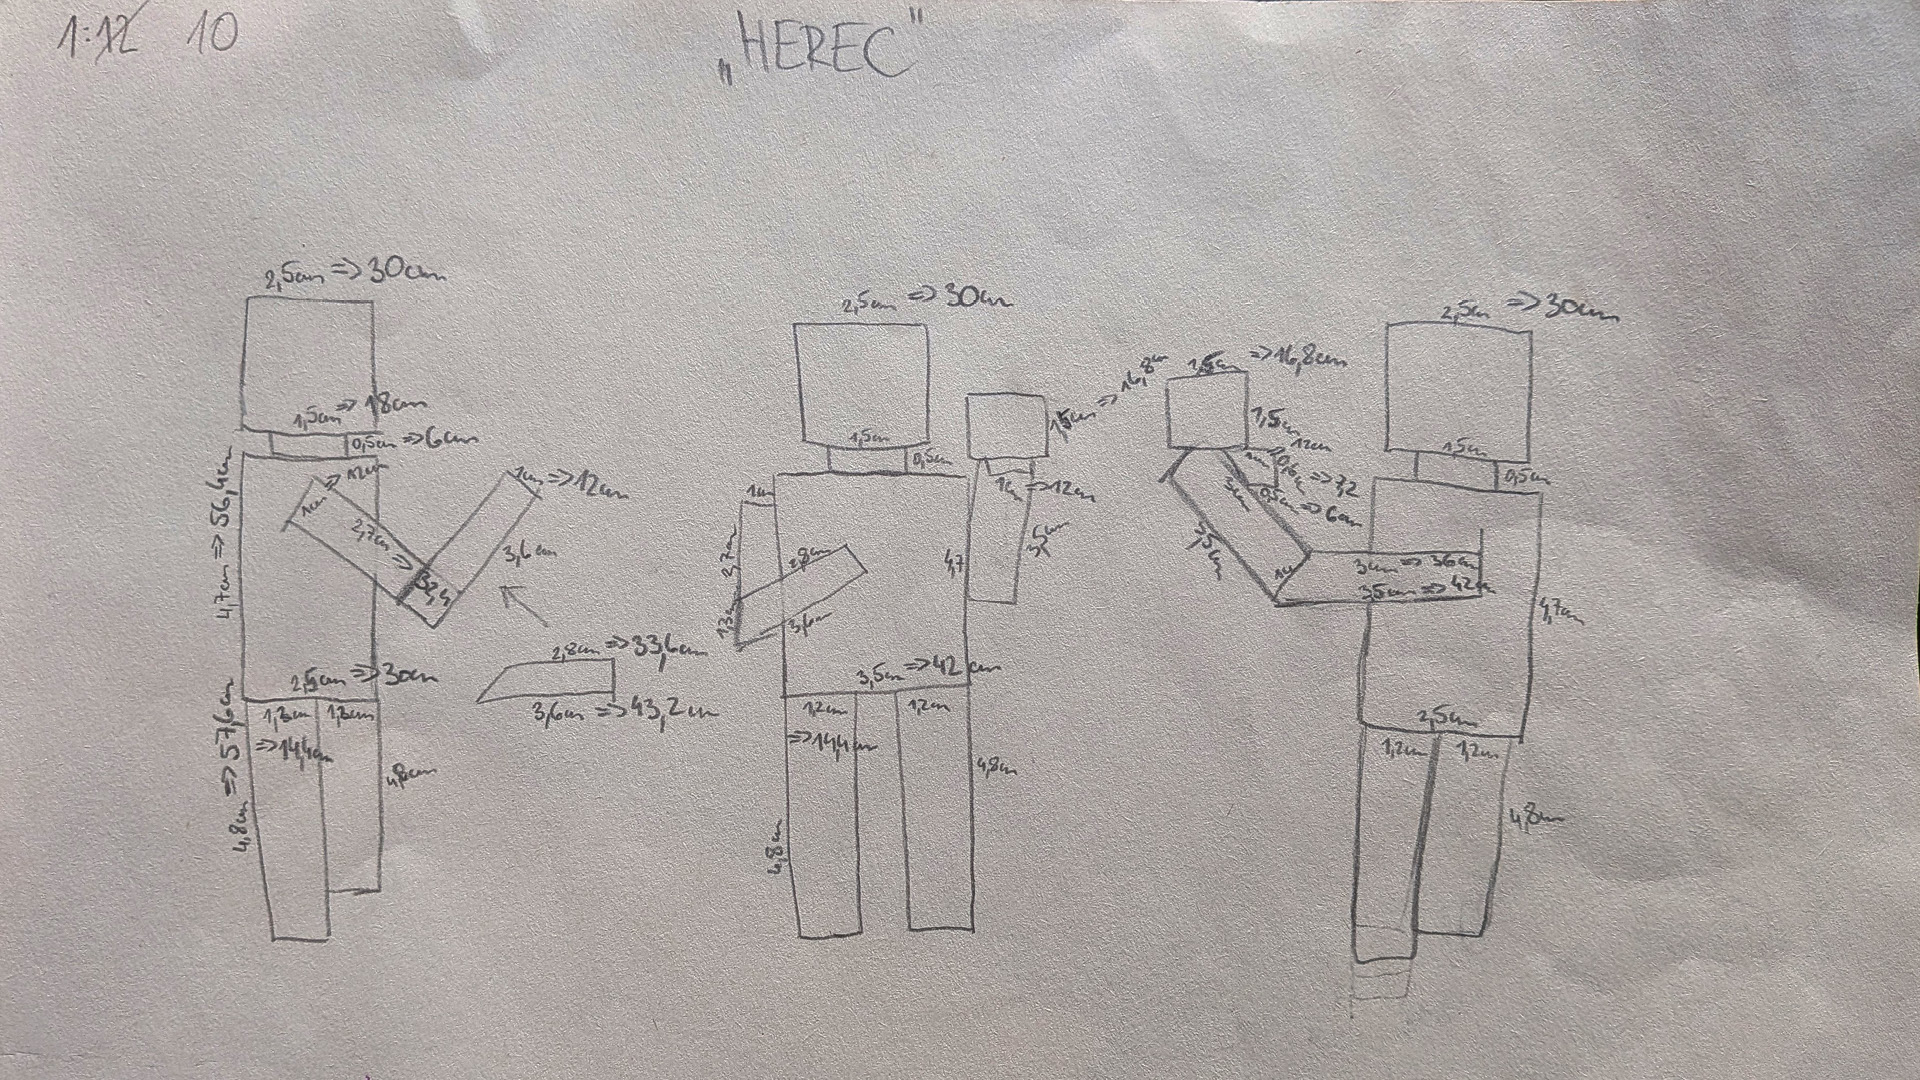 1:12 10
„HEREC"
2,5cm => 30cm
1,5cm => 18cm
0,5cm => 6cm
4,7cm => 56,4cm
1cm => 12cm
2,7cm => 32,4
1cm => 12cm
3,6cm
2,5cm => 30cm
1,2cm 1,2cm
=> 14,4cm
4,8cm => 57,6cm
4,8cm
2,8cm => 33,6cm
3,6cm => 43,2cm
2,5cm => 30cm
1,5cm
0,5cm
1,5cm => 16,8cm
1cm
1cm => 12cm
2,7cm
2,8cm
4,7
1,3cm
3,6cm
3,5cm => 42cm
1,2cm 1,2cm
=> 14,4cm
4,8cm
4,8cm
=> 16,8cm
1,5cm
12cm
1cm
0,6cm => 7,2
0,5cm => 6cm
3cm
3,5cm
1cm
3cm => 36cm
3,5cm => 42cm
2,5cm => 30cm
1,5cm
0,5cm
4,7cm
2,5cm
1,2cm 1,2cm
4,8cm